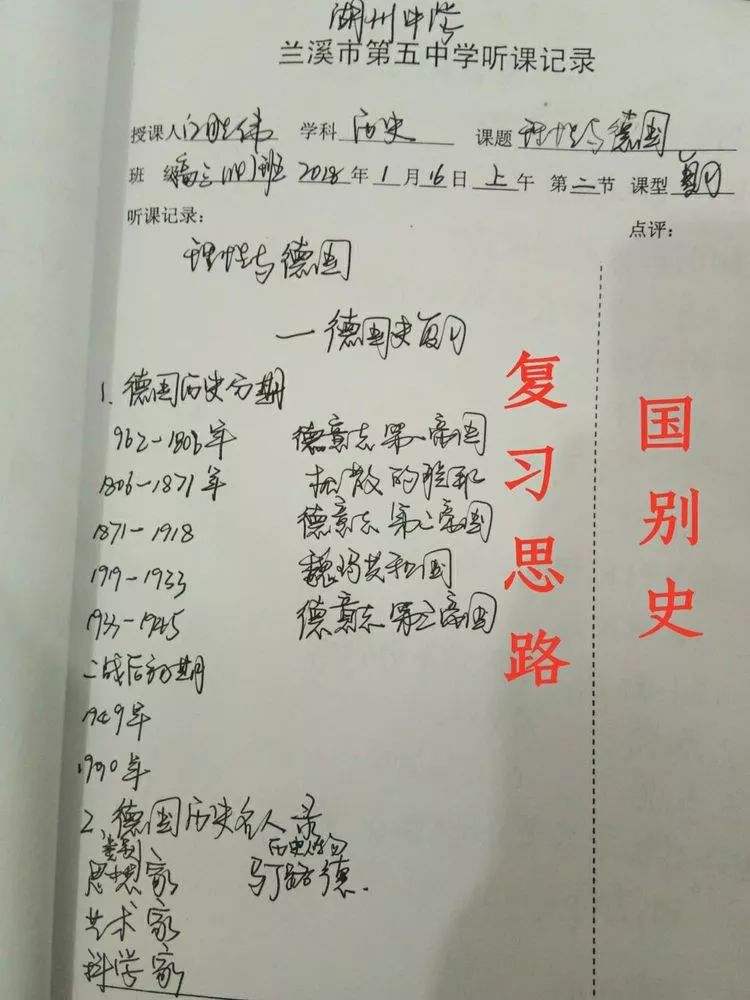 湖州中学
兰溪市第五中学听课记录
授课人 胜伟 学科 历史 课题 理性与德国
班 级 高三 班 2018年1月16日上午 第二节 课型 复习
听课记录：
点评：
理性与德国
—德国史复习
1、德国历史分期
962-1806年 德意志第一帝国
1806-1871年 松散的
1871-1918 德意志第二帝国
1919-1933 魏玛共和国
1933-1945 德意志第三帝国
二战后初期
1949年
1990年
2、德国历史名人录
类别 历史人物
思想家 马丁路德.
艺术家
科学家
复习思路
国别史